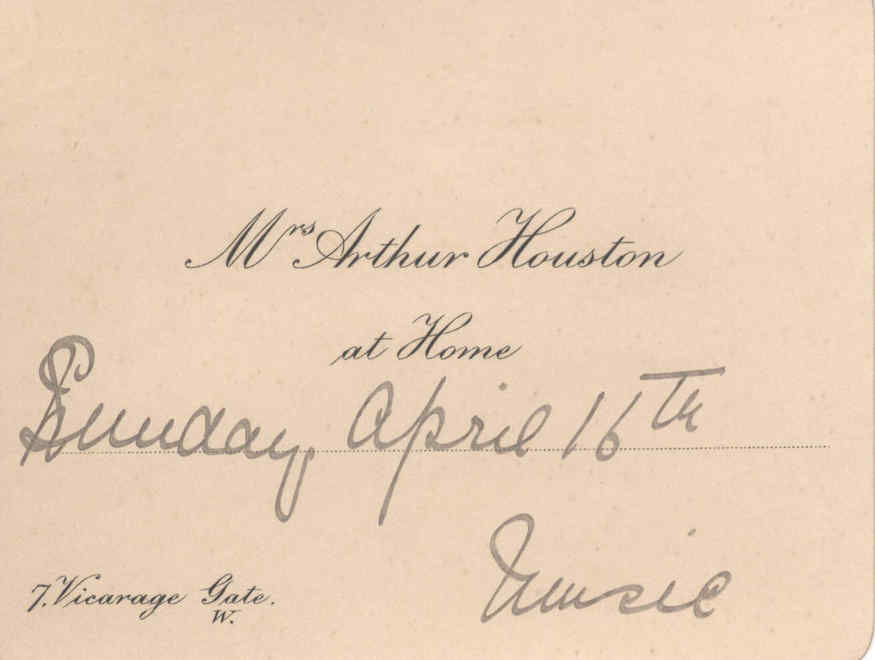 Mrs Arthur Houston
at Home
Sunday, April 16th
Music
7. Vicarage Gate.
W.